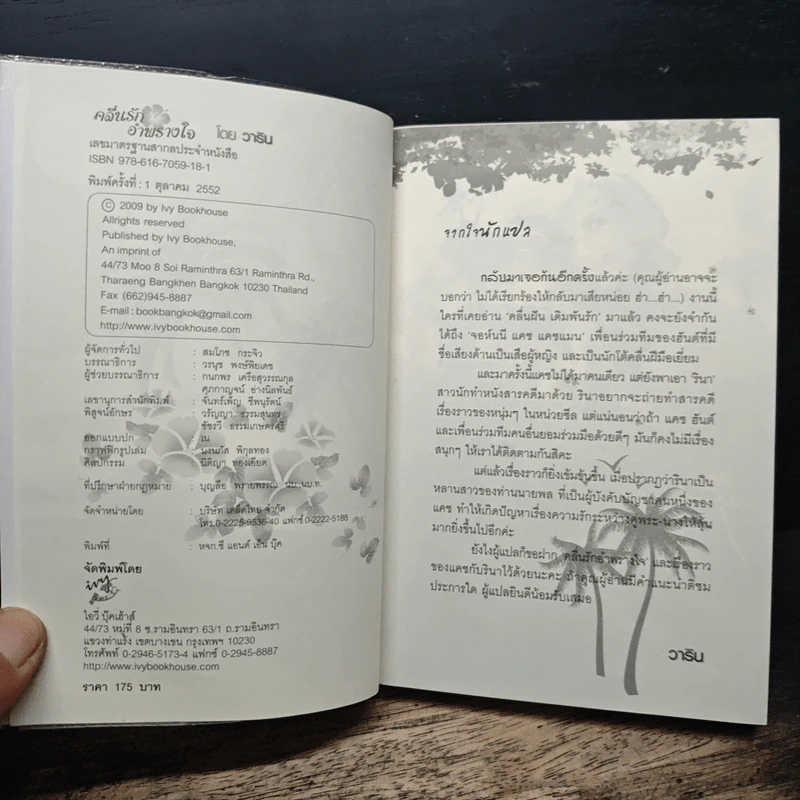 คลื่นรัก
อำพรางใจ โดย วาริน
เลขมาตรฐานสากลประจำหนังสือ
ISBN 978-616-7059-18-1
พิมพ์ครั้งที่ : 1 ตุลาคม 2552
© 2009 by Ivy Bookhouse
Allrights reserved
Published by Ivy Bookhouse,
An imprint of
44/73 Moo 8 Soi Raminthra 63/1 Raminthra Rd.,
Tharaeng Bangkhen Bangkok 10230 Thailand
Fax (662)945-8887
E-mail : bookbangkok@gmail.com
http://www.ivybookhouse.com
ผู้จัดการทั่วไป : สมโภช กระจิว
บรรณาธิการ : วรนุช พงษ์พิยเดช
ผู้ช่วยบรรณาธิการ : กนกพร เครือสุวรรณกุล
ศุภกาญจน์ อ่างนิลพันธ์
เลขานุการสำนักพิมพ์ : จันทร์เพ็ญ ชีพนุรัตน์
พิสูจน์อักษร : วรัญญา ธรรมสุนทร
ชัชรวี ธรรมเกษตรศรี
ออกแบบปก : เน
กราฟฟิกรูปเล่ม : นงนภัส พิกุลทอง
ศิลปกรรม : นิติญา ทองเอียด
ที่ปรึกษาฝ่ายกฎหมาย : บุญลือ พรายพรรณ นบ.นบ.ท.
จัดจำหน่ายโดย : บริษัท เคล็ดไทย จำกัด
โทร.0-2225-9536-40 แฟกซ์ 0-2222-5188
พิมพ์ที่ : หจก.ซี แอนด์ เอ็น บุ๊ค
จัดพิมพ์โดย
ไอวี่ บุ๊คเฮ้าส์
44/73 หมู่ที่ 8 ซ.รามอินทรา 63/1 ถ.รามอินทรา
แขวงท่าแร้ง เขตบางเขน กรุงเทพฯ 10230
โทรศัพท์ 0-2946-5173-4 แฟกซ์ 0-2945-8887
http://www.ivybookhouse.com
ราคา 175 บาท
จากใจนักแปล
กลับมาเจอกันอีกครั้งแล้วค่ะ (คุณผู้อ่านอาจจะ
บอกว่า ไม่ได้เรียกร้องให้กลับมาเสียหน่อย ฮ่า...ฮ่า...) งานนี้
ใครที่เคยอ่าน 'คลื่นฝัน เดิมพันรัก' มาแล้ว คงจะยังจำกัน
ได้ถึง 'จอห์นนี แคช แคชแมน' เพื่อนร่วมทีมของฮันต์ที่มี
ชื่อเสียงด้านเป็นเสือผู้หญิง และเป็นนักโต้คลื่นฝีมือเยี่ยม
และมาครั้งนี้แคชไม่ได้มาคนเดียว แต่ยังพาเอา 'รินา'
สาวนักทำหนังสารคดีมาด้วย รินาอยากจะถ่ายทำสารคดี
เรื่องราวของหนุ่มๆ ในหน่วยซีล แต่แน่นอนว่าถ้า แคช ฮันต์
และเพื่อนร่วมทีมคนอื่นยอมร่วมมือด้วยดีๆ มันก็คงไม่มีเรื่อง
สนุกๆ ให้เราได้ติดตามกันสิคะ
แต่แล้วเรื่องราวก็ยิ่งเข้มข้นขึ้น เมื่อปรากฏว่ารินาเป็น
หลานสาวของท่านนายพล ที่เป็นผู้บังคับบัญชาคนหนึ่งของ
แคช ทำให้เกิดปัญหาเรื่องความรักระหว่างคู่พระ-นางให้ลุ้น
มากยิ่งขึ้นไปอีกค่ะ
ยังไงผู้แปลก็ขอฝาก 'คลื่นรักอำพรางใจ' และเรื่องราว
ของแคชกับรินาไว้ด้วยนะคะ ถ้าคุณผู้อ่านมีคำแนะนำติชม
ประการใด ผู้แปลยินดีน้อมรับเสมอ
วาริน